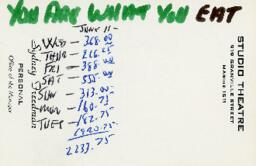 YOU ARE WHAT YOU EAT
JUNE 11 -
WED - 368.00
THUR - 226.25
FRI - 388.00
SAT - 555.00
SUN - 313.00
MON - 160.75
TUET - 182.75
2233.75
Sydney Freedman
PERSONAL
Office of the Manager
STUDIO THEATRE
919 GRANVILLE STREET
MARINE 1511